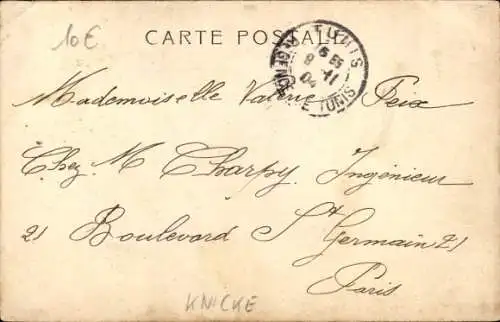 10€
CARTE POSTALE
TUNIS
15 E5
8 -11
04
AGENCE TUNIS
Mademoiselle Valérie Feix
Chez M Charpy Ingénieur
21 Boulevard St Germain 21
Paris
KNICKE